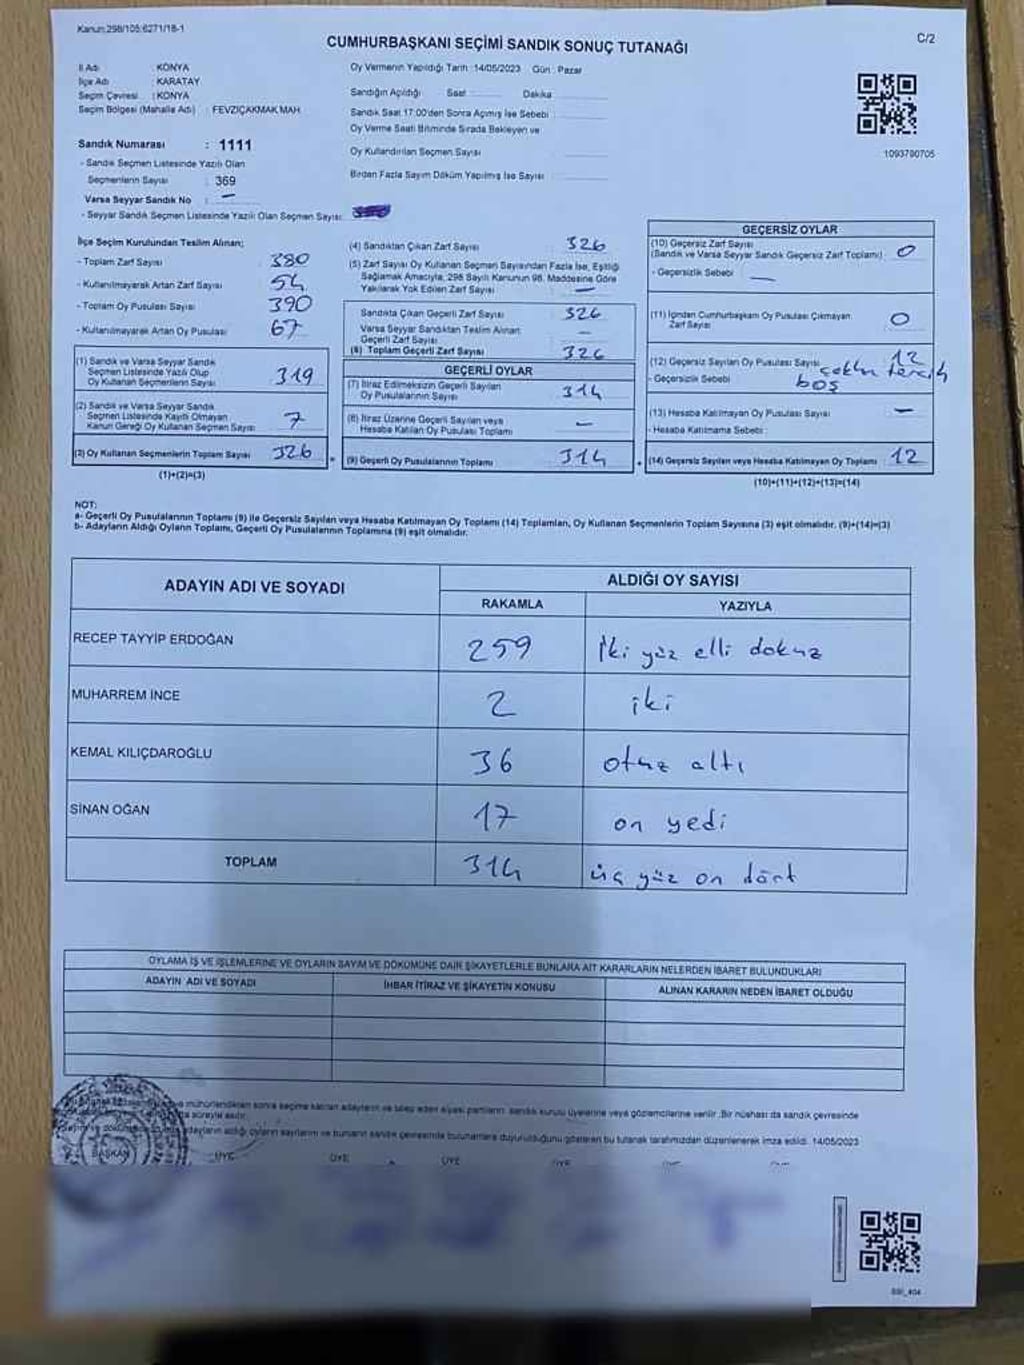 Kanun:298/105;6271/18-1
C/2
CUMHURBAŞKANI SEÇİMİ SANDIK SONUÇ TUTANAĞI
İl Adı : KONYA
İlçe Adı : KARATAY
Seçim Çevresi : KONYA
Seçim Bölgesi (Mahalle Adı) : FEVZİÇAKMAK MAH.
Oy Vermenin Yapıldığı Tarih :14/05/2023 Gün : Pazar
Sandığın Açıldığı Saat Dakika
Sandık Saat 17:00'den Sonra Açılmış İse Sebebi
Oy Verme Saati Bitiminde Sırada Bekleyen ve
Oy Kullandırılan Seçmen Sayısı
Birden Fazla Sayım Döküm Yapılmış İse Sayısı
1093790705
Sandık Numarası : 1111
- Sandık Seçmen Listesinde Yazılı Olan
Seçmenlerin Sayısı : 369
Varsa Seyyar Sandık No : —
- Seyyar Sandık Seçmen Listesinde Yazılı Olan Seçmen Sayısı:
İlçe Seçim Kurulundan Teslim Alınan;
- Toplam Zarf Sayısı 380
- Kullanılmayarak Artan Zarf Sayısı 54
- Toplam Oy Pusulası Sayısı 390
- Kullanılmayarak Artan Oy Pusulası 67
(1) Sandık ve Varsa Seyyar Sandık
Seçmen Listesinde Yazılı Olup
Oy Kullanan Seçmenlerin Sayısı 319
(2) Sandık ve Varsa Seyyar Sandık
Seçmen Listesinde Kayıtlı Olmayan
Kanun Gereği Oy Kullanan Seçmen Sayısı 7
(3) Oy Kullanan Seçmenlerin Toplam Sayısı 326
(1)+(2)=(3)
(4) Sandıktan Çıkan Zarf Sayısı 326
(5) Zarf Sayısı Oy Kullanan Seçmen Sayısından Fazla İse, Eşitliği
Sağlamak Amacıyla, 298 Sayılı Kanunun 98. Maddesine Göre
Yakılarak Yok Edilen Zarf Sayısı —
Sandıkta Çıkan Geçerli Zarf Sayısı 326
Varsa Seyyar Sandıktan Teslim Alınan
Geçerli Zarf Sayısı —
(6) Toplam Geçerli Zarf Sayısı 326
GEÇERLİ OYLAR
(7) İtiraz Edilmeksizin Geçerli Sayılan
Oy Pusulalarının Sayısı 314
(8) İtiraz Üzerine Geçerli Sayılan veya
Hesaba Katılan Oy Pusulası Toplamı —
(9) Geçerli Oy Pusulalarının Toplamı 314
GEÇERSİZ OYLAR
(10) Geçersiz Zarf Sayısı
(Sandık ve Varsa Seyyar Sandık Geçersiz Zarf Toplamı) 0
- Geçersizlik Sebebi —
(11) İçinden Cumhurbaşkanı Oy Pusulası Çıkmayan
Zarf Sayısı 0
(12) Geçersiz Sayılan Oy Pusulası Sayısı 12
- Geçersizlik Sebebi boş
(13) Hesaba Katılmayan Oy Pusulası Sayısı —
- Hesaba Katılmama Sebebi :
(14) Geçersiz Sayılan veya Hesaba Katılmayan Oy Toplamı : 12
(10)+(11)+(12)+(13)=(14)
NOT:
a- Geçerli Oy Pusulalarının Toplamı (9) ile Geçersiz Sayılan veya Hesaba Katılmayan Oy Toplamı (14) Toplamları, Oy Kullanan Seçmenlerin Toplam Sayısına (3) eşit olmalıdır. (9)+(14)=(3)
b- Adayların Aldığı Oyların Toplamı, Geçerli Oy Pusulalarının Toplamına (9) eşit olmalıdır.
ADAYIN ADI VE SOYADI
ALDIĞI OY SAYISI
RAKAMLA YAZIYLA
RECEP TAYYİP ERDOĞAN 259 iki yüz elli dokuz
MUHARREM İNCE 2 iki
KEMAL KILIÇDAROĞLU 36 otuz altı
SİNAN OĞAN 17 on yedi
TOPLAM 314 üç yüz on dört
OYLAMA İŞ VE İŞLEMLERİNE VE OYLARIN SAYIM VE DÖKÜMÜNE DAİR ŞİKAYETLERLE BUNLARA AİT KARARLARIN NELERDEN İBARET BULUNDUKLARI
ADAYIN ADI VE SOYADI İHBAR İTİRAZ VE ŞİKAYETİN KONUSU ALINAN KARARIN NEDEN İBARET OLDUĞU
mühürlendikten sonra seçime katılan adayların ve talep eden siyasi partilerin sandık kurulu üyelerine veya gözlemcilerine verilir. Bir nüshası da sandık çevresinde
süreyle asılır.
adayların aldığı oyların sayılarını ve bunların sandık çevresinde bulunanlara duyurulduğunu gösteren bu tutanak tarafımızdan düzenlenerek imza edildi. 14/05/2023
BAŞKAN ÜYE ÜYE ÜYE ÜYE